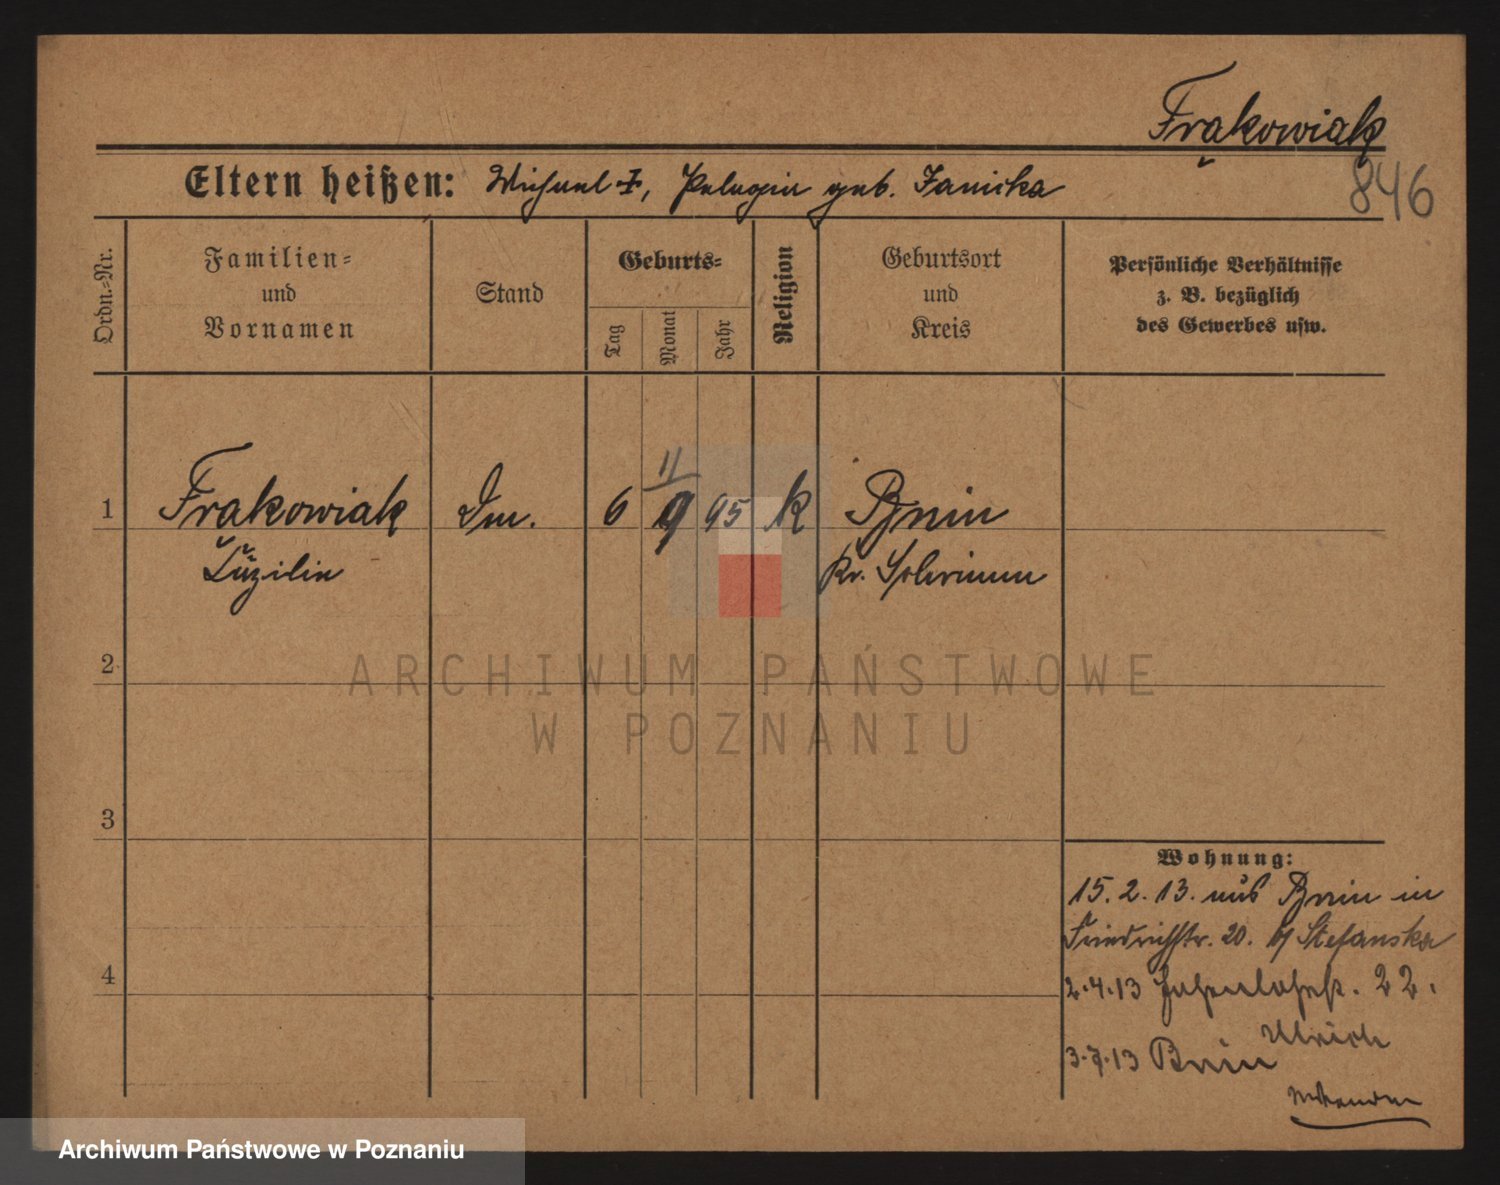 Frąkowiak
846
Eltern heißen: Michael †, Pelagia geb. Janicka
Ordn.-Nr.
Familien-
und
Vornamen
Stand
Geburts-
Tag
Monat
Jahr
Religion
Geburtsort
und
Kreis
Persönliche Verhältnisse
z. B. bezüglich
des Gewerbes usw.
1
Frąkowiak
Cäzilie
6
11
9
95
k
Bnin
Kr. Schrimm
2
3
4
Wohnung:
15. 2. 13. aus Bnin in
Friedrichstr. 20. b/ Stefanska
2.4.13 22.
Ulrich
3.7.13 Bnin
ARCHIWUM PAŃSTWOWE
W POZNANIU
Archiwum Państwowe w Poznaniu